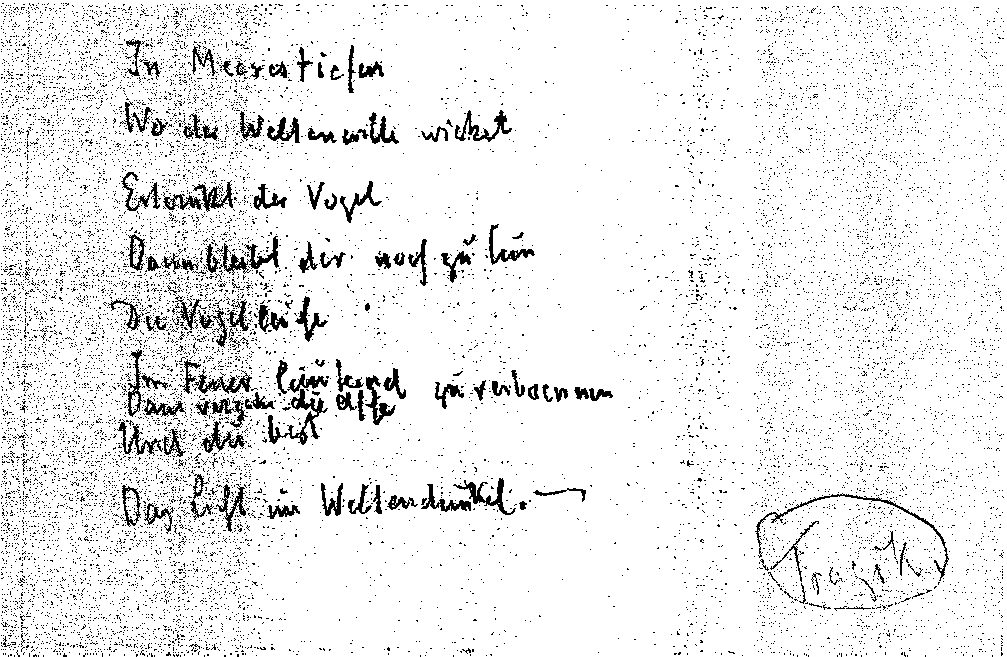 In Meerestiefen
Wo der Weltenwille wirket
Ertrinkt der Vogel
Dann bleibt dir noch zu tun
Die Vogelleiche
Im Feuer läuternd zu verbrennen
Dann verzehr die
Und du bist
Das Licht im Weltendunkel.
Tragik